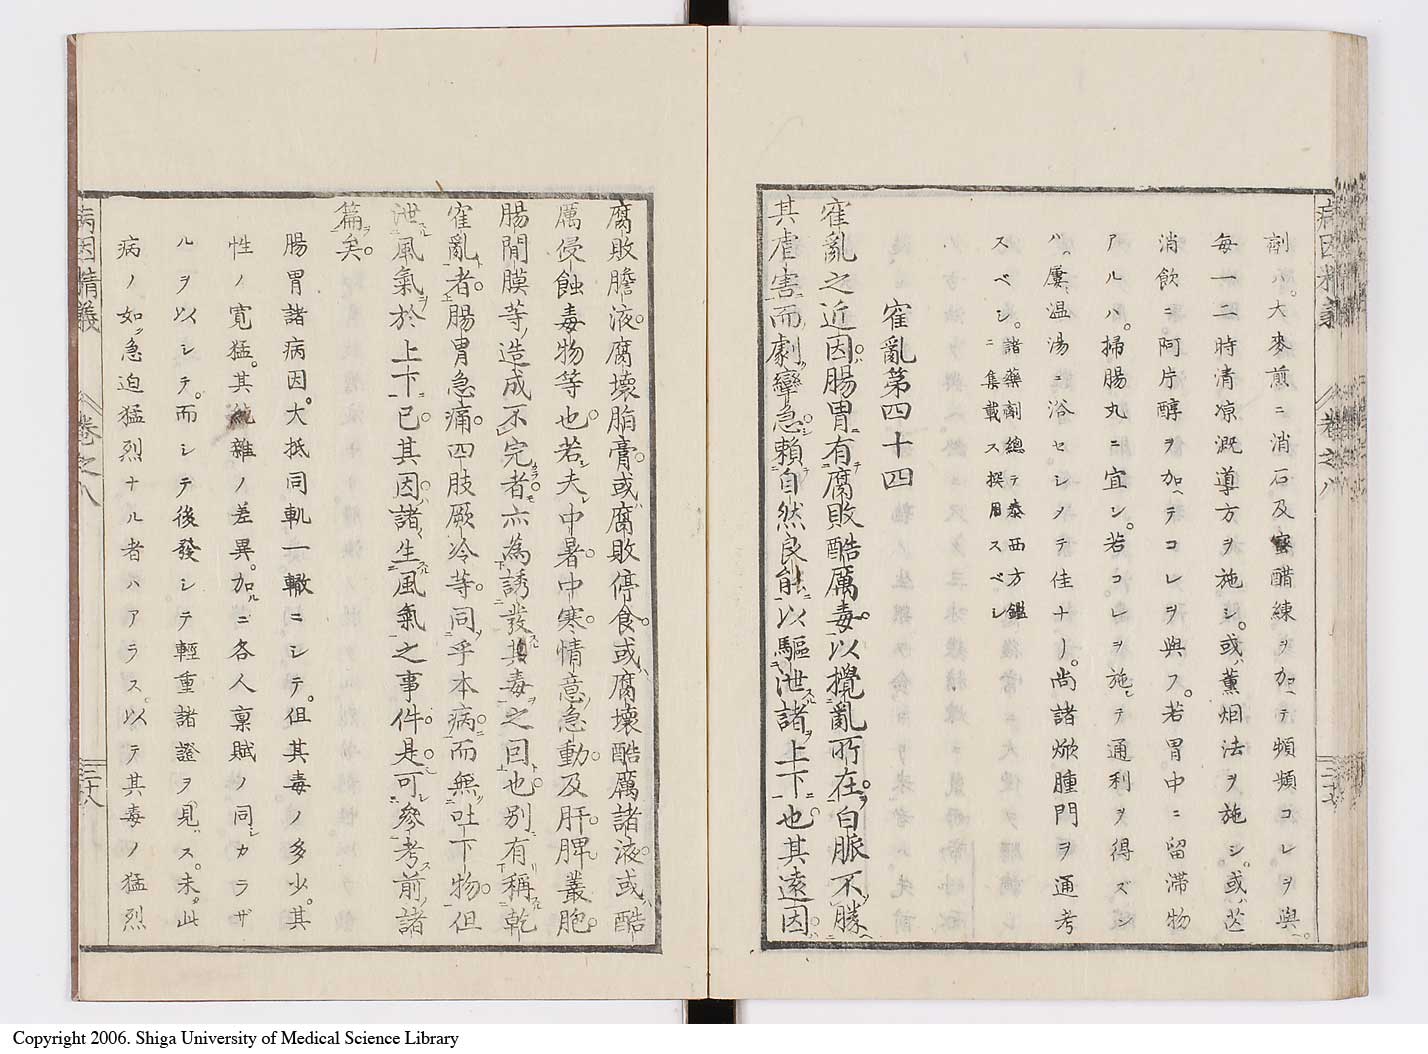 病因精義 卷之八 二十七
劑ハ。大麥煎ニ消石及蜜醋練ヲ加ヘテ頻頻コレヲ與ヘ。
每一二時清凉漑導方ヲ施シ。或ハ薰烟法ヲ施シ。或ハ芘
消飲ニ阿片醇ヲ加ヘテコレヲ與フ。若胃中ニ留滯物
アルハ。掃腸丸ニ宜シ。若コヲ施シテ通利ヲ得ズン
ハ。屢温湯ニ浴セシメテ佳ナリ。尚諸焮腫門ヲ通考
スベシ。諸藥劑總テ泰西方鑑
ニ集載ス撰用スベシ
寉亂第四十四
寉亂之近因腸胃有腐敗酷厲毒以攪亂所在白脈不勝
其虐害而劇攣急賴自然良能以驅泄諸上下也其遠因
腐敗膽液腐壞脂膏或腐敗停食或腐壞酷厲諸液或酷
厲侵蝕毒物等也若夫中暑中寒情意急動及肝脾叢胞
腸間膜等造成不完者亦為誘發其毒之因也別有稱乾
寉亂者腸胃急痛四肢厥冷等同乎本病而無吐下物但
泄風氣於上下已其因諸生風氣之事件是可參考前諸
篇矣。
腸胃諸病因。大抵同軌一轍ニシテ。但其毒ノ多少。其
性ノ寬猛。其純雜ノ差異。加ルニ各人稟賦ノ同シカラザ
ルヲ以シテ。而シテ後發シテ輕重諸證ヲ見ハス。未タ此
病ノ如ク急迫猛烈ナル者ハアラス。以テ其毒ノ猛烈
病因精義 卷之八 二十八
Copyright 2006. Shiga University of Medical Science Library